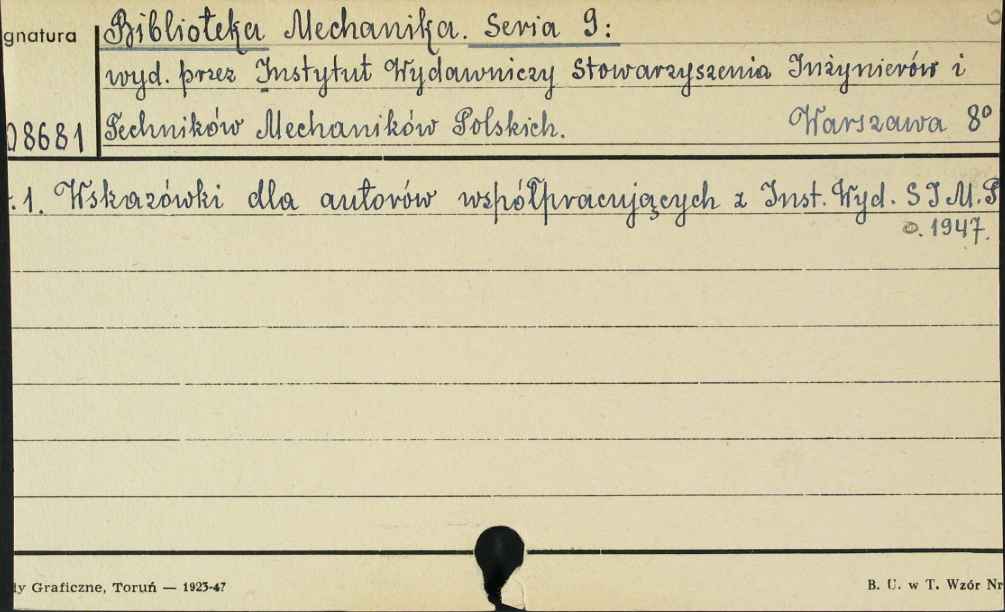 gnatura
Biblioteka Mechanika. Seria 9:
wyd. przez Instytut Wydawniczy Stowarzyszenia Inżynierów i
08681 Techników Mechaników Polskich. Warszawa 8º
1. Wskazówki dla autorów współpracujących z Inst. Wyd. S I M. P
1947.
dy Graficzne, Toruń — 1923-47 B. U. w T. Wzór Nr